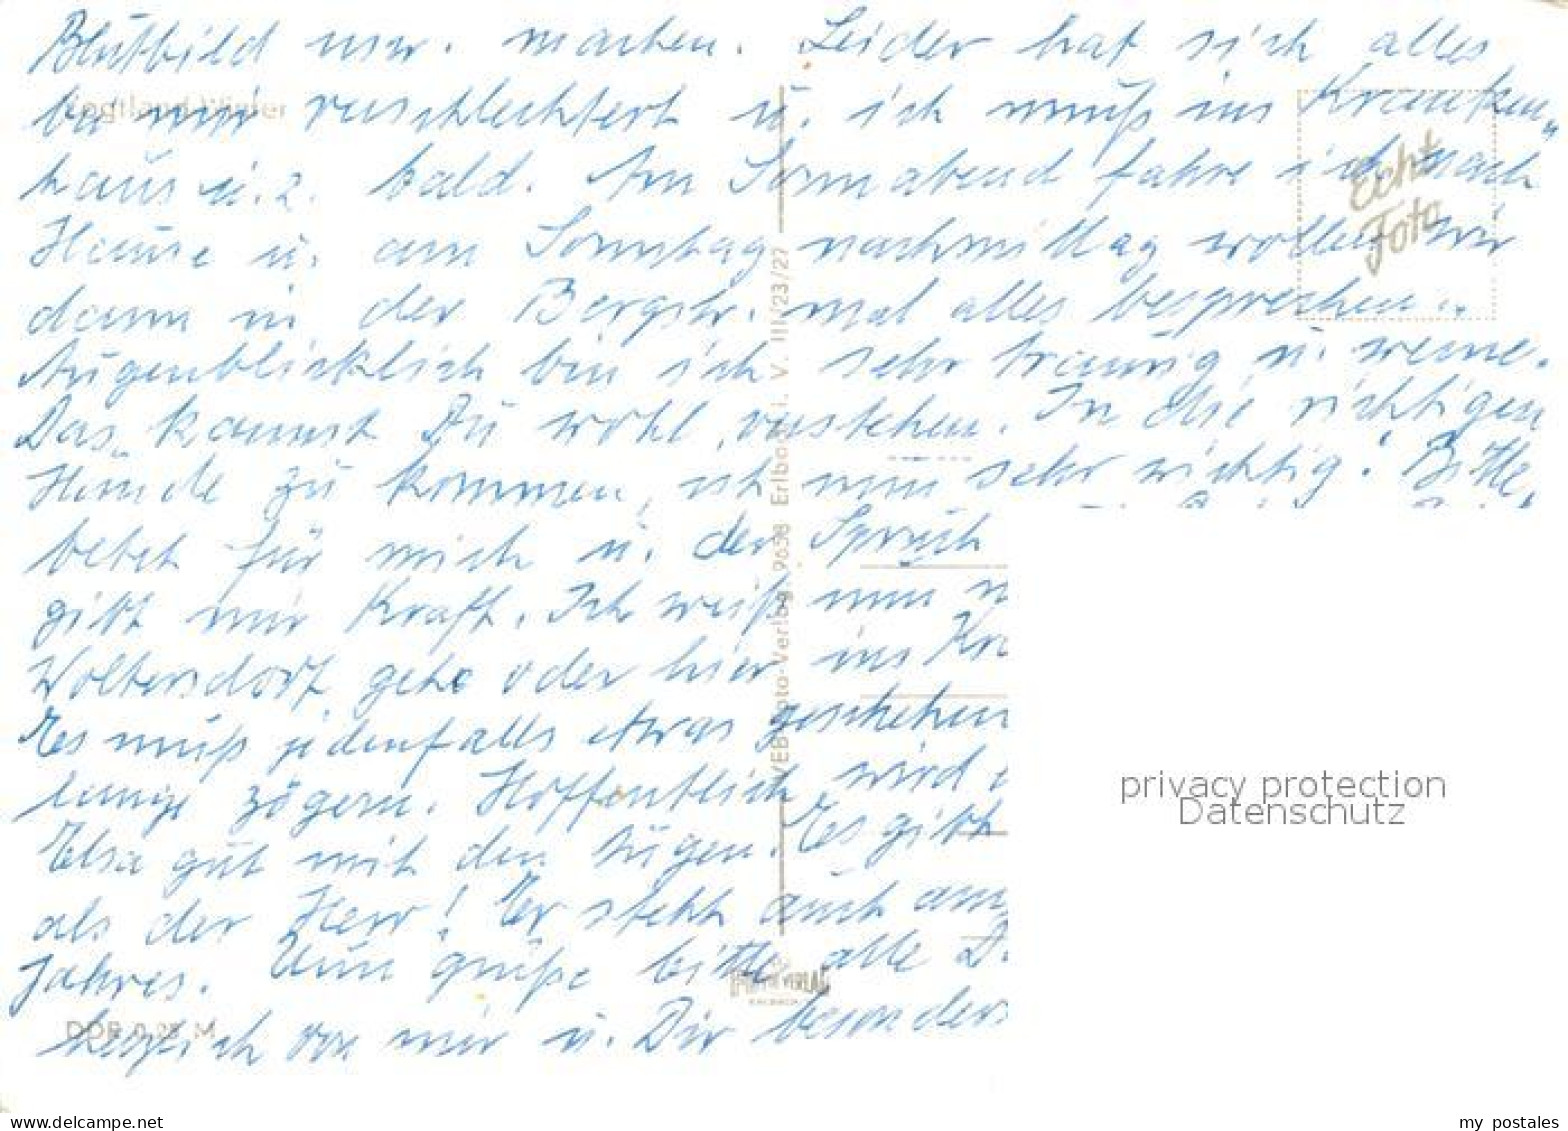 Blutbild usw. machen. Leider hat sich alles
bei mir verschlechtert u. ich muß ins Kranken„
haus u. z. bald. Am Sonnabend fahre ich nach
Hause u. am Sonntag nachmittag wollen wir
dann in der Bergstr. mal alles besprechen.
Augenblicklich bin ich sehr traurig u. weine.
Das kannst Du wohl verstehen. In die richtigen
Hände zu kommen, ist nun sehr wichtig! Bitte,
betet für mich u. der Spruch
gibt mir Kraft. Ich weiß nun n
Woltersdorf gehe oder hier ins Kra
Es muß jedenfalls etwas geschehen
lange zögern. Hoffentlich wird
Elsa gut mit den Augen. Es gibt
als der Herr! Er steht auch am
Jahres. Nun grüße bitte alle
herzlich von mir u. Dir besonders
Vogtland-Winter
Echt
Foto
VEB Foto-Verlag, 9658 Erlbach i. V. III/23/27
FOTO VERLAG
ERLBACH
DDR 0,25 M
privacy protection
Datenschutz
my postales